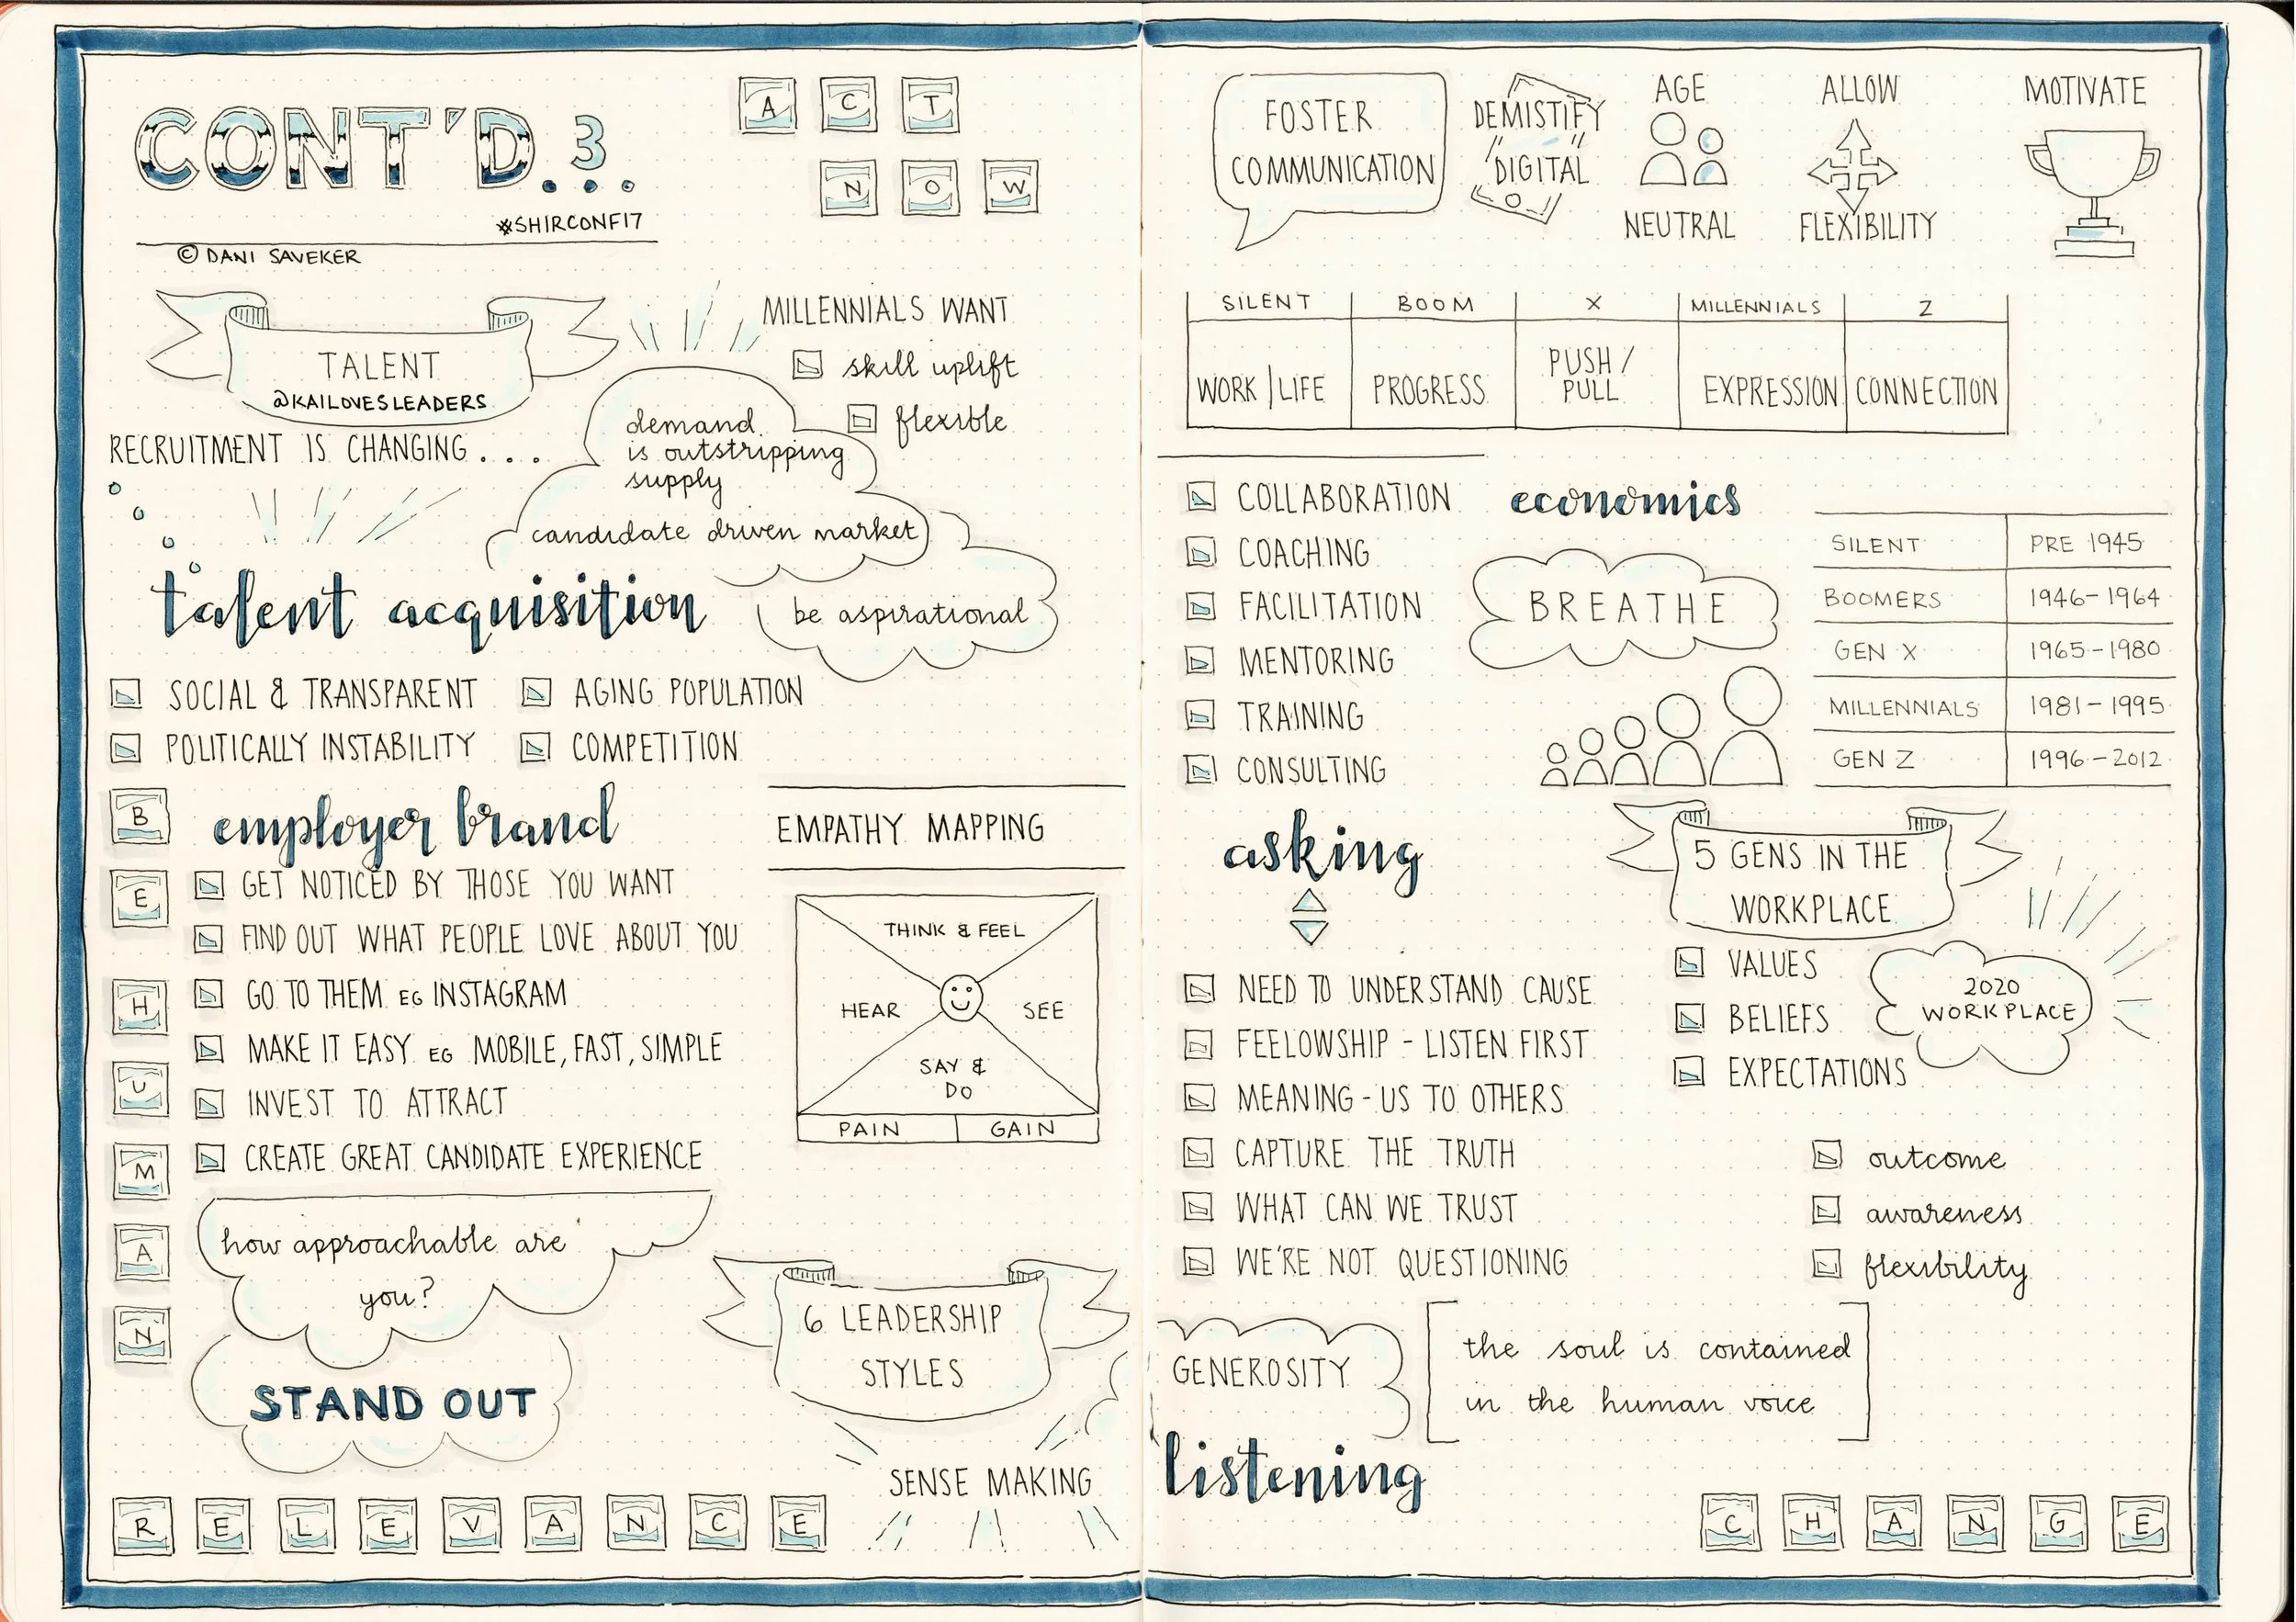 CONT'D. 3...
#SHIRCONF17
© DANI SAVEKER
ACT
NOW
TALENT
@KAILOVESLEADERS
RECRUITMENT IS CHANGING....
MILLENNIALS WANT
skill uplift
flexible
demand
is outstripping
supply
candidate driven market
be aspirational
talent acquisition
SOCIAL & TRANSPARENT
AGING POPULATION
POLITICALLY INSTABILITY
COMPETITION
BE HUMAN
employer brand
GET NOTICED BY THOSE YOU WANT
FIND OUT WHAT PEOPLE LOVE ABOUT YOU
GO TO THEM EG INSTAGRAM
MAKE IT EASY EG MOBILE, FAST, SIMPLE
INVEST TO ATTRACT
CREATE GREAT CANDIDATE EXPERIENCE
EMPATHY MAPPING
THINK & FEEL
HEAR
SEE
SAY &
DO
PAIN
GAIN
how approachable are
you?
STAND OUT
6 LEADERSHIP
STYLES
SENSE MAKING
RELEVANCE
FOSTER
COMMUNICATION
DEMISTIFY
"DIGITAL
AGE
NEUTRAL
ALLOW
FLEXIBILITY
MOTIVATE
SILENT BOOM X MILLENNIALS Z
WORK | LIFE
PROGRESS
PUSH /
PULL
EXPRESSION
CONNECTION
COLLABORATION
COACHING
FACILITATION
MENTORING
TRAINING
CONSULTING
economics
BREATHE
SILENT PRE 1945
BOOMERS 1946-1964
GEN X 1965-1980
MILLENNIALS 1981-1995
GEN Z 1996-2012
asking
5 GENS IN THE
WORKPLACE
VALUES
BELIEFS
EXPECTATIONS
2020
WORKPLACE
NEED TO UNDERSTAND CAUSE
FEELOWSHIP - LISTEN FIRST
MEANING - US TO OTHERS
CAPTURE THE TRUTH
WHAT CAN WE TRUST
WE'RE NOT QUESTIONING
outcome
awareness
flexibility
GENEROSITY
the soul is contained
in the human voice
listening
CHANGE